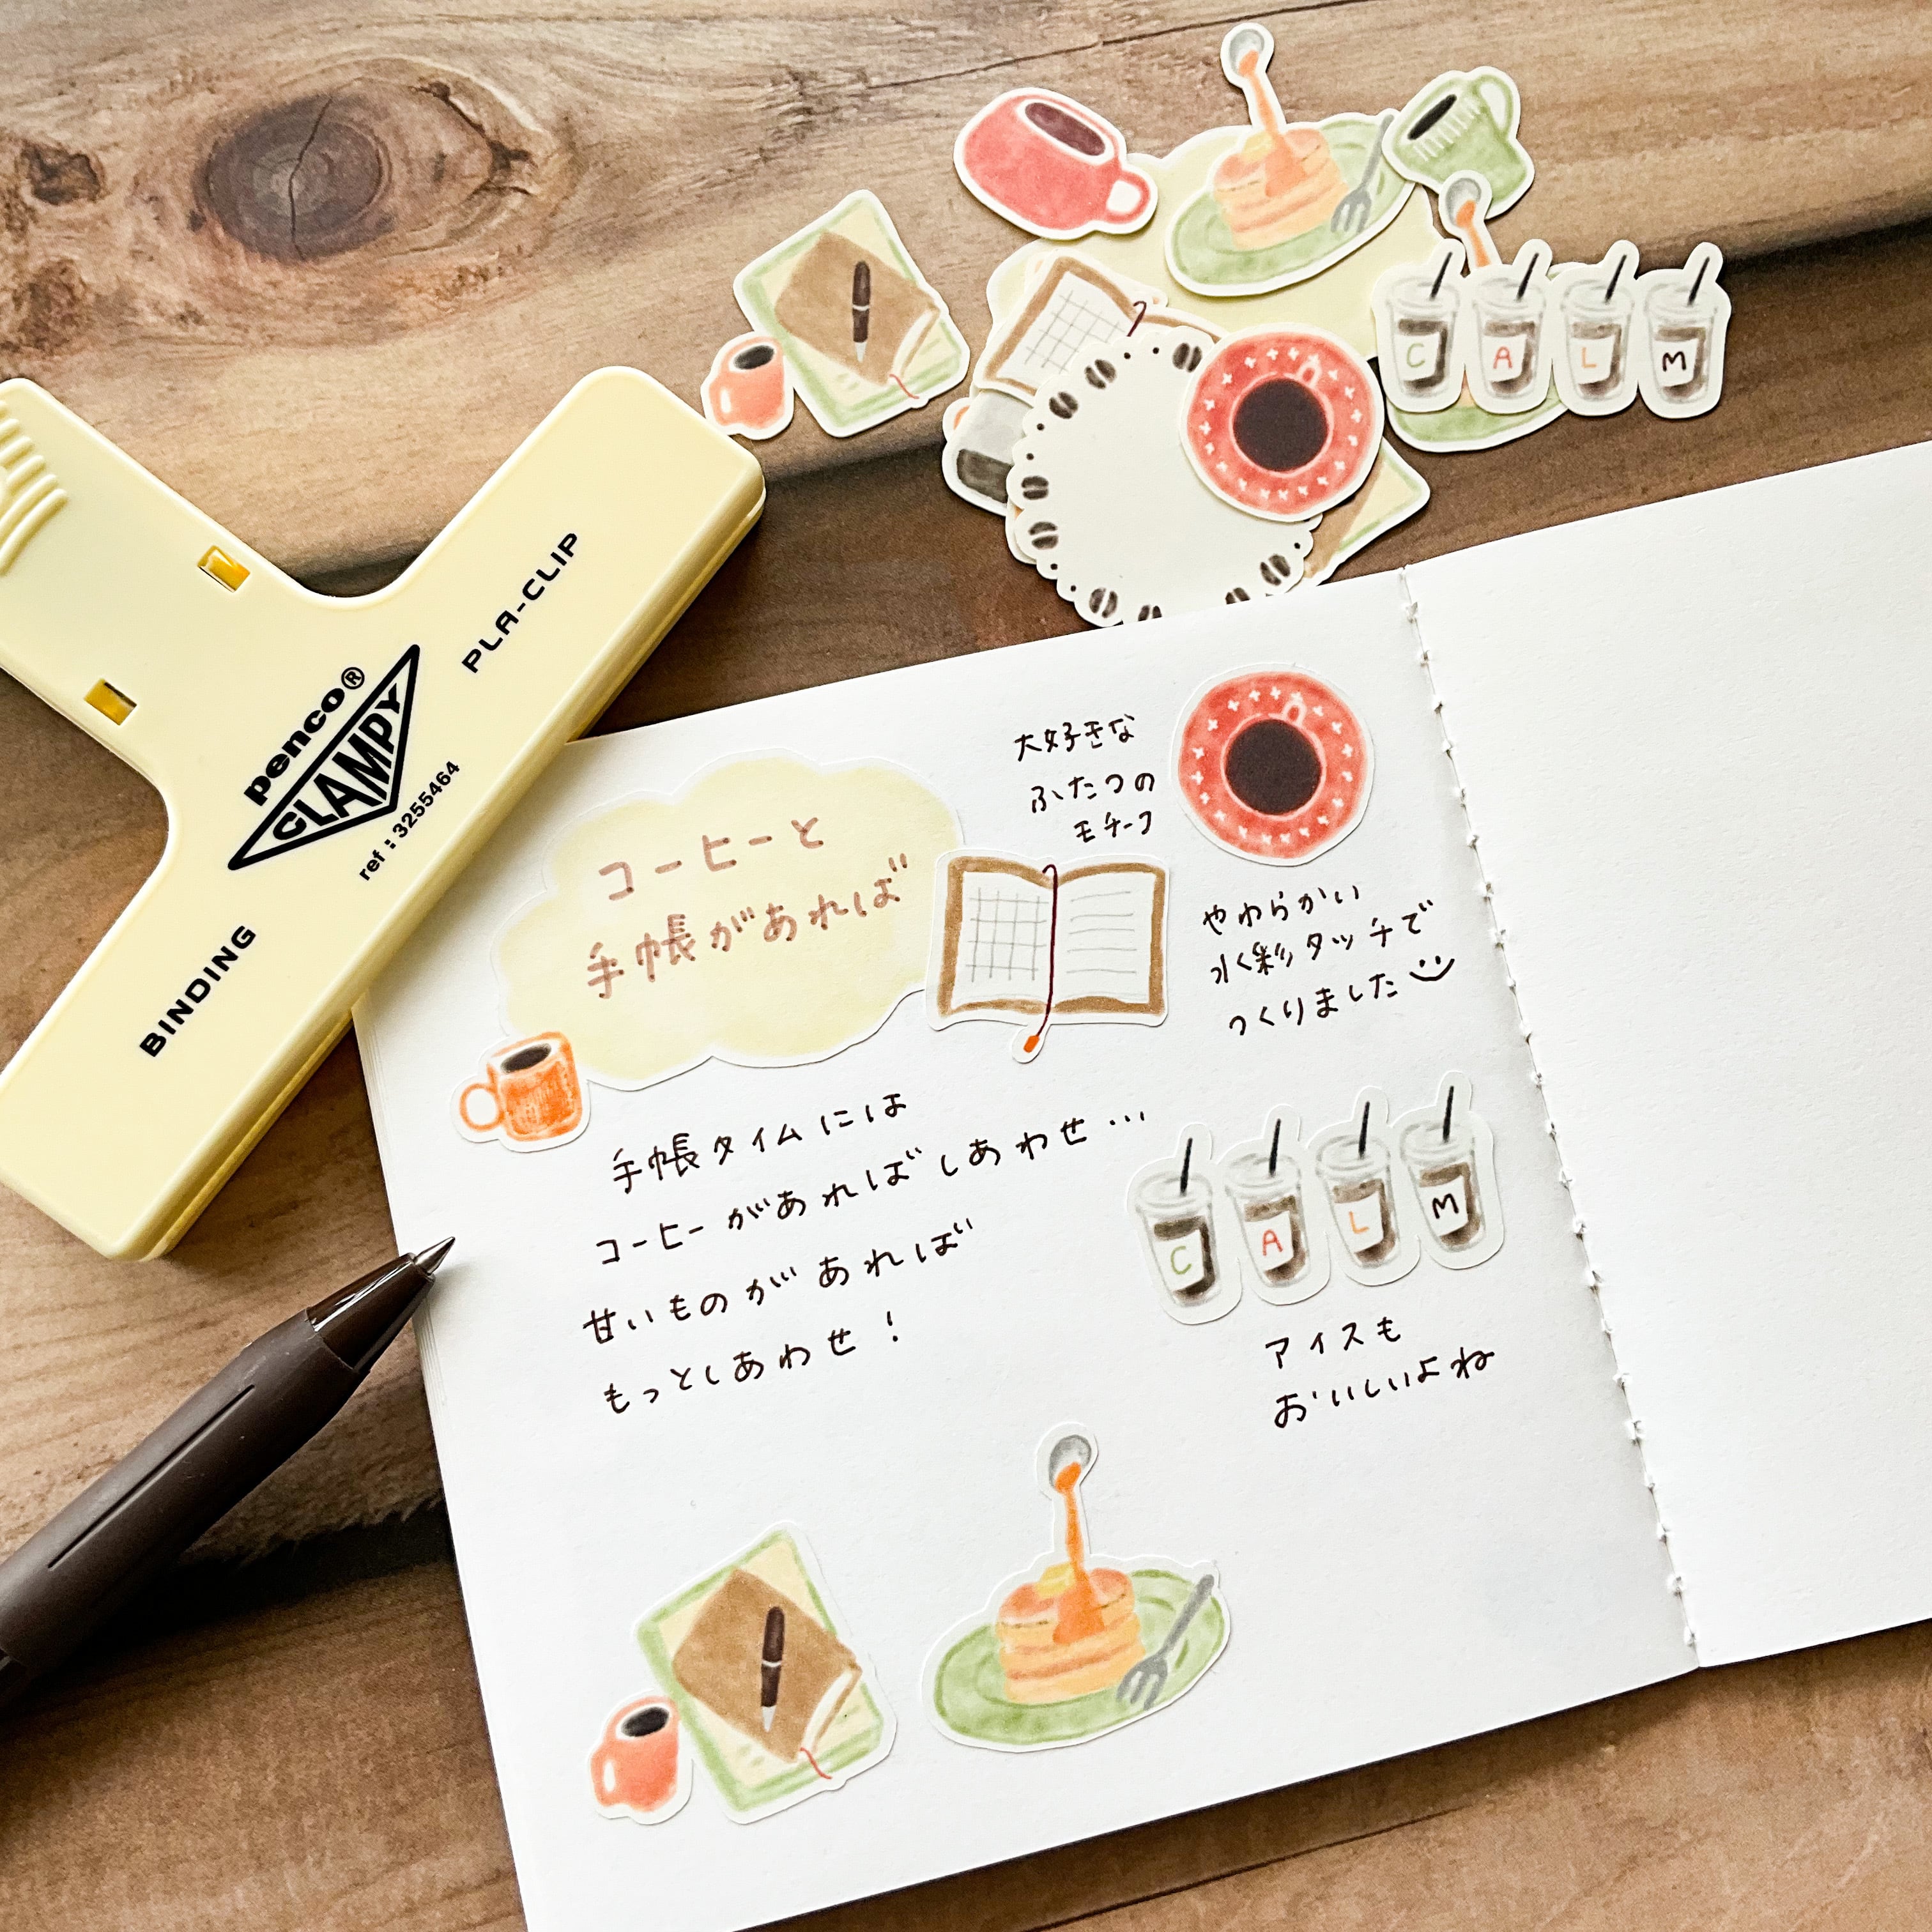 C A L M
penco®
CLAMPY
PLA-CLIP
BINDING
ref : 3255464
コーヒーと
手帳があれば
大好きな
ふたつの
モチーフ
やわらかい
水彩タッチで
つくりました
手帳タイムには
コーヒーがあればしあわせ…
甘いものがあれば
もっとしあわせ!
C A L M
アイスも
おいしいよね